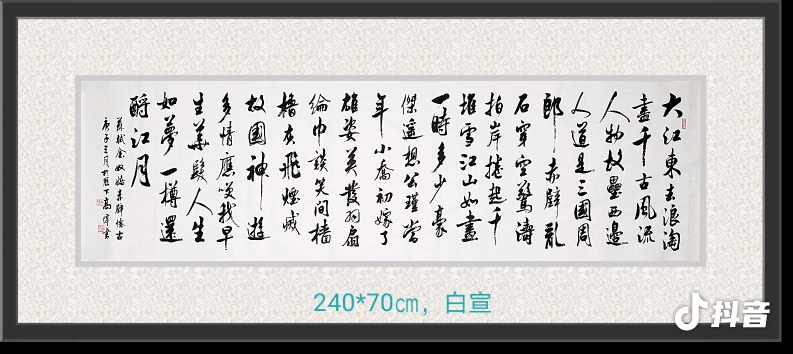 大江東去浪淘
盡千古風流
人物故壘西邊
人道是三國周
郎赤壁亂
石穿空驚濤
拍岸捲起千
堆雪江山如畫
一時多少豪
傑遙想公瑾當
年小喬初嫁了
雄姿英發羽扇
綸巾談笑間檣
櫓灰飛煙滅
故國神遊
多情應笑我早
生華髮人生
如夢一樽還
酹江月
蘇軾念奴嬌赤壁懷古
庚子
240*70㎝，白宣
抖音